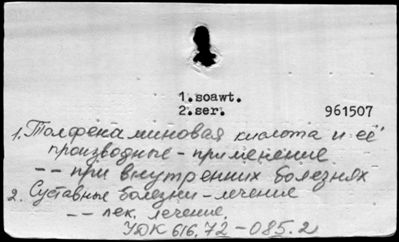 1.soawt.
2.ser. 961507
1. Толфенаминовая кислота и её
производные - применение
-- при внутренних болезнях
2. Суставные болезни - лечение
-- лек. лечение.
УДК 616.72-085.2